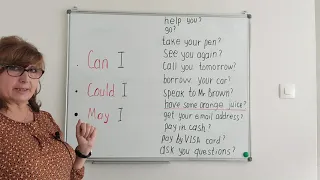 help you?
go?
take your pen?
• Can I
see you again?
call you tomorrow?
• Could I
borrow your car?
speak to Mr Brown?
• May I
have some orange juice?
get your email address?
pay in cash?
pay by VISA card?
ask you questions?